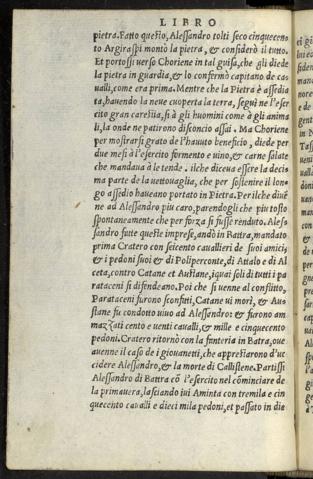 LIBRO
pietra. Fatto questo, Alessandro tolti seco cinquecen
to Argiraspi montò la pietra, & considerò il tutto.
Et portossi uerso Choriene in tal guisa, che gli diede
la pietra in guardia, & lo confermò capitano de ca-
ualli, come era prima. Mentre che la Pietra è assedia
ta, hauendo la neue cuoperta la terra, seguì ne l'eser
cito gran carestia, sì à gli huomini come à gli anima
li, la onde ne patirono disconcio assai. Ma Choriene
per mostrarsi grato de l'hauuto beneficio, diede per
due mesi à l'esercito formento e uino, & carne salate
che mandaua à le tende. ilche diceua essere la deci-
ma parte de la uettouaglia, che per sostenire il lon-
go assedio haueano portato in Pietra. Per ilche diuē
ne ad Alessandro piu caro, parendogli che piu tosto
spontaneamente che per forza si fusse renduto. Ales-
sandro fatte queste imprese, andò in Battra, mandato
prima Cratero con seicento cauallieri de suoi amici,
& i pedoni suoi & di Poliperconte, di Attalo e di Al
ceta, contro Catane et Austane, i quai soli di tutti i pa
rataceni si difendeano. Poi che si uenne al conflitto,
Parataceni furono sconfitti, Catane ui morì, & Aus
stane fu condotto uiuo ad Alessandro: & furono am
mazzati cento e uenti caualli, & mille e cinquecento
pedoni. Cratero ritornò con la fanteria in Batra, oue
auenne il caso de i giouanetti, che apprestarono d'uc
cidere Alessandro, & la morte di Callistene. Partissi
Alessandro di Battra cō l'esercito nel cōminciare de
la primauera, lasciando iui Aminta con tremila e cin
quecento caualli e dieci mila pedoni, et passato in die